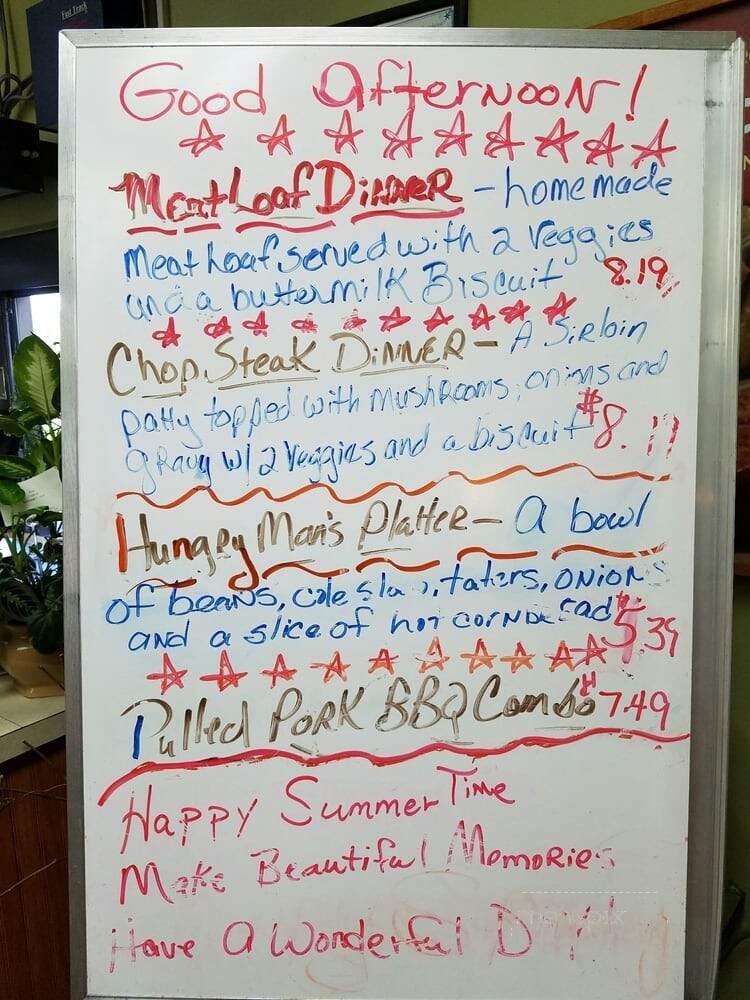 Fast Track
Good Afternoon!
Meat Loaf Dinner - homemade
Meat Loaf served with 2 Veggies
and a buttermilk Biscuit 8.19
Chop Steak Dinner - A Sirloin
patty topped with mushrooms, onions and
gravy w/ 2 Veggies and a biscuit $8.
Hungry Man's Platter - A bowl
of beans, cole slaw, taters, onions
and a slice of hot cornbread $5.39
Pulled Pork BBQ Combo $7.49
Happy Summer Time
Make Beautiful Memories
Have A Wonderful Day!